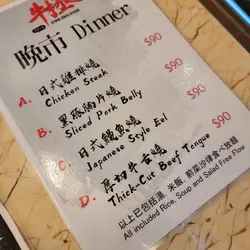 晚市 Dinner
A. 日式雞排燒 $90
Chicken Steak
B. 黑豚腩片燒 $90
Sliced Pork Belly
C. 日式鰻魚燒 $90
Japanese Style Eel
D. 厚切牛舌燒 $90
Thick-Cut Beef Tongue
以上已包括湯，米飯，前菜沙律食べ放題
All included Rice, Soup and Salad Free Flow